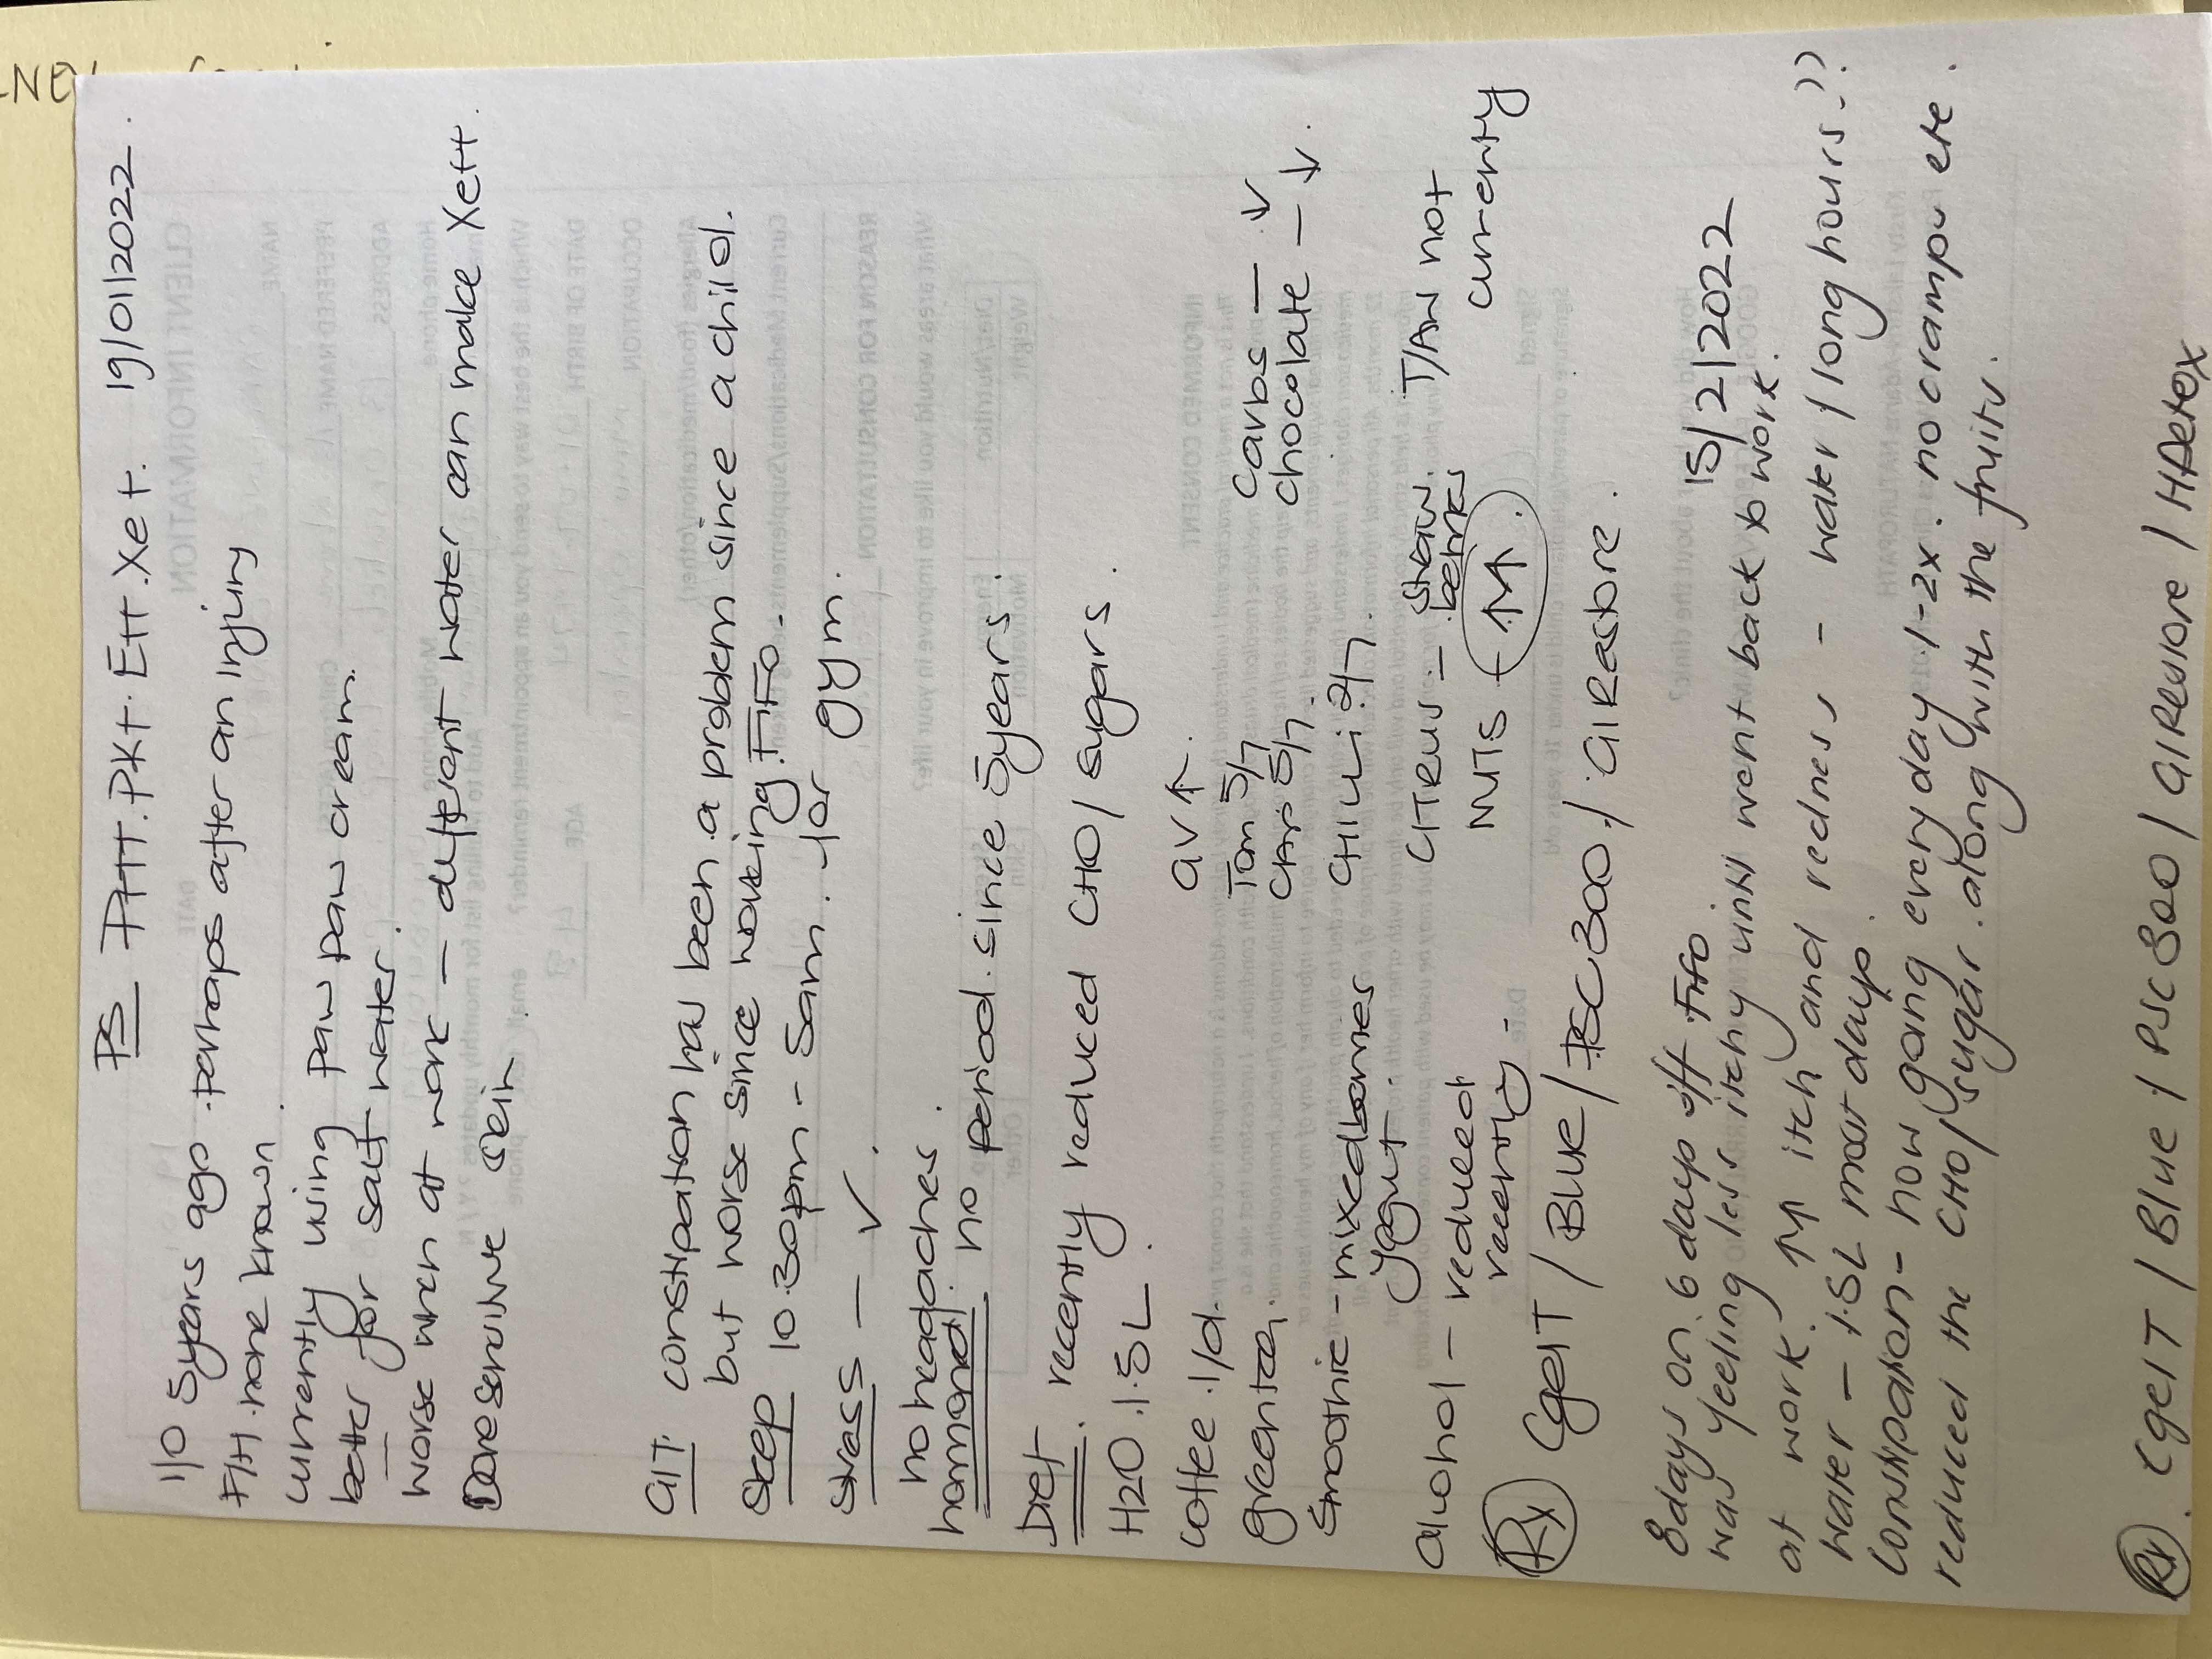 PS Itt. Pkt. Ett. Xet. 19/01/2022.
I/O 5years ago. perhaps after an injury
F/H. none known.
currently using paw paw cream.
better for salt water.
worse when at work – different water can make Xett.
Does sensitive skin
GIT. constipation has been a problem since a child.
but worse since working FIFO.
Sleep 10.30pm - 5am. - for gym.
Stress – ✓.
no headaches.
hormonal. no period. since 5years.
Diet. recently reduced CHO/ sugars.
H2O. 1.5L.
coffee. 1/d. av ↑.
greentea. Tom 5/7 carbs – ↓
Smoothie - mixed berries Cap 5/7. chocolate – ↓.
yogurt CHILLI. 2/7.
alcohol – reduced CITRUS – straw. T/AW not
recently. berries currently
NUTS – ↑M↑.
Rx CgeIT / Blue / PSC300. / GI Restore.
8days on 6 days off FIFO 15/2/2022
was feeling less itchy until went back to work.
at work. ↑M itch and redness - water / long hours.??
water – 1.5L most days.
Constipation – now going every day 1-2x. no cramps etc.
reduced the CHO/sugar. along with the fruits.
Rx. CgeIT / Blue / PSC300 / GIRestore / HPDetox